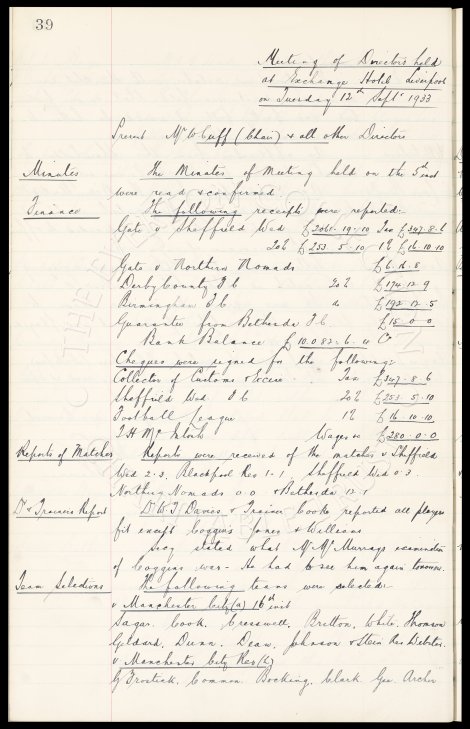 39
Meeting of Directors held
at Exchange Hotel Liverpool
on Tuesday 12th Sept 1933
Present Mr W Cuff (Chair) & all other Directors
Minutes The Minutes of Meeting held on the 5th inst
were read & confirmed
Finance The following receipts were reported:-
Gate v Sheffield Wed £2061-19-10 Tax £347-8-6
20% £253-5-10 1% £16-10-10
Gate v Northern Nomads £6-16-8
Derby County F C 20% £174-12-9
Birmingham F C do £192-12-5
Guarantee from Bethesda F.C. £15-0-0
Bank Balance £10,082-6-11 Cr
Cheques were signed for the following:-
Collector of Customs & Excise Tax £347-8-6
Sheffield Wed F C 20% £253-5-10
Football League 1% £16-10-10
T H McIntosh Wages £280-0-0
Reports of Matches Reports were received of the matches v Sheffield
Wed 2-3. Blackpool Res 1-1 Sheffield Wed 0.3
Northern Nomads 0 0 & Bethesda
Dr & Trainers Report Dr W.F. Davies & Trainer Cooke reported all players
fit except Coggins Jones & Williams
Secy stated what Mr McMurrays examination
of Coggins was - He had to see him again tomorrow.
Team Selections The following teams were selected:-
v Manchester City (a) 16th inst
Sagar. Cook. Cresswell. Britton. White. Thomson
Geldard. Dunn. Dean. Johnson & Stein Res Webster.
v Manchester City Res (h)
Common. Bocking. Clark. Gee. Archer